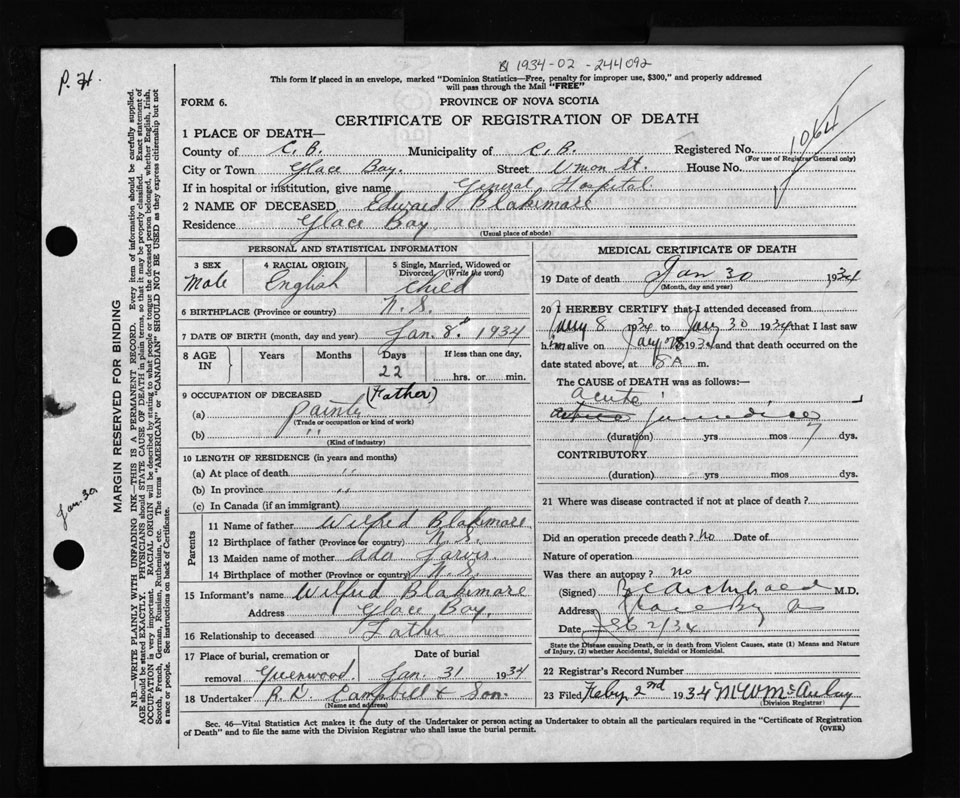 1934-02-244092
P.H.
This form if placed in an envelope, marked "Dominion Statistics—Free, penalty for improper use, $300," and properly addressed
will pass through the Mail "FREE"
FORM 6.
PROVINCE OF NOVA SCOTIA
CERTIFICATE OF REGISTRATION OF DEATH
1064
1 PLACE OF DEATH—
County of C.B. Municipality of C.B. Registered No.
(For use of Registrar General only)
City or Town Glace Bay. Street Union St. House No.
If in hospital or institution, give name General Hospital
2 NAME OF DECEASED Edward Blakimore
Residence Glace Bay
(Usual place of abode)
PERSONAL AND STATISTICAL INFORMATION
3 SEX 4 RACIAL ORIGIN 5 Single, Married, Widowed or
Divorced (Write the word)
Male English Child
6 BIRTHPLACE (Province or country) N.S.
7 DATE OF BIRTH (month, day and year) Jan. 8th 1934
8 AGE IN Years Months Days If less than one day,
22 hrs. or min.
9 OCCUPATION OF DECEASED (Father)
(a) Painter
(Trade or occupation or kind of work)
(b) "
(Kind of industry)
10 LENGTH OF RESIDENCE (in years and months)
(a) At place of death "
(b) In province "
(c) In Canada (if an immigrant)
Parents
11 Name of father Wilfred Blakimore
12 Birthplace of father (Province or country) N.S.
13 Maiden name of mother Ada Jarvis.
14 Birthplace of mother (Province or country) N.S.
15 Informant's name Wilfred Blakimore
Address Glace Bay.
16 Relationship to deceased Father
17 Place of burial, cremation or Date of burial
removal Greenwood. Jan. 31 1934
18 Undertaker R.D. Campbell & Son.
(Name and address)
MEDICAL CERTIFICATE OF DEATH
19 Date of death Jan 30 1934
(Month, day and year)
20 I HEREBY CERTIFY that I attended deceased from
Jany 8 1934 to Jany 30 1934 that I last saw
him alive on Jany 28 1934 and that death occurred on the
date stated above, at 8 A m.
The CAUSE OF DEATH was as follows:—
Acute
Jaundice
(duration) yrs mos 7 dys.
CONTRIBUTORY
(duration) yrs mos dys.
21 Where was disease contracted if not at place of death?
Did an operation precede death? No Date of
Nature of operation
Was there an autopsy? No
(Signed) Archibald M.D.
Address Glace Bay
Date Feb 2/34
State the Disease causing Death, or in death from Violent Causes, state (1) Means and Nature
of Injury, (2) whether Accidental, Suicidal or Homicidal.
22 Registrar's Record Number
23 Filed Feby 2nd 1934 M W McAulay
(Division Registrar)
Sec. 46—Vital Statistics Act makes it the duty of the Undertaker or person acting as Undertaker to obtain all the particulars required in the "Certificate of Registration
of Death" and to file the same with the Division Registrar who shall issue the burial permit.
(OVER)
Jan. 30
MARGIN RESERVED FOR BINDING
N.B.—WRITE PLAINLY WITH UNFADING INK—THIS IS A PERMANENT RECORD. Every item of information should be carefully supplied.
AGE should be stated EXACTLY. PHYSICIANS should STATE CAUSE OF DEATH in plain terms, so that it may be properly classified. Exact statement of
OCCUPATION is very important. RACIAL ORIGIN will be described by stating to what people or tongue the deceased person belonged, whether English, Irish,
Scotch, French, German, Russian, Ruthenian, etc. The terms "AMERICAN" or "CANADIAN" SHOULD NOT BE USED as they express citizenship but not
a race or people. See instructions on back of Certificate.